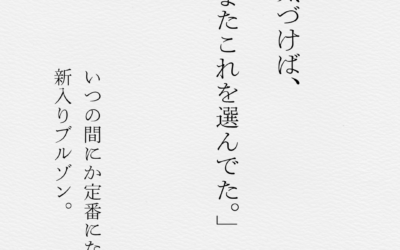 づけば、
またこれを選んでた。」
いつの間にか定番にな
新入りブルゾン。